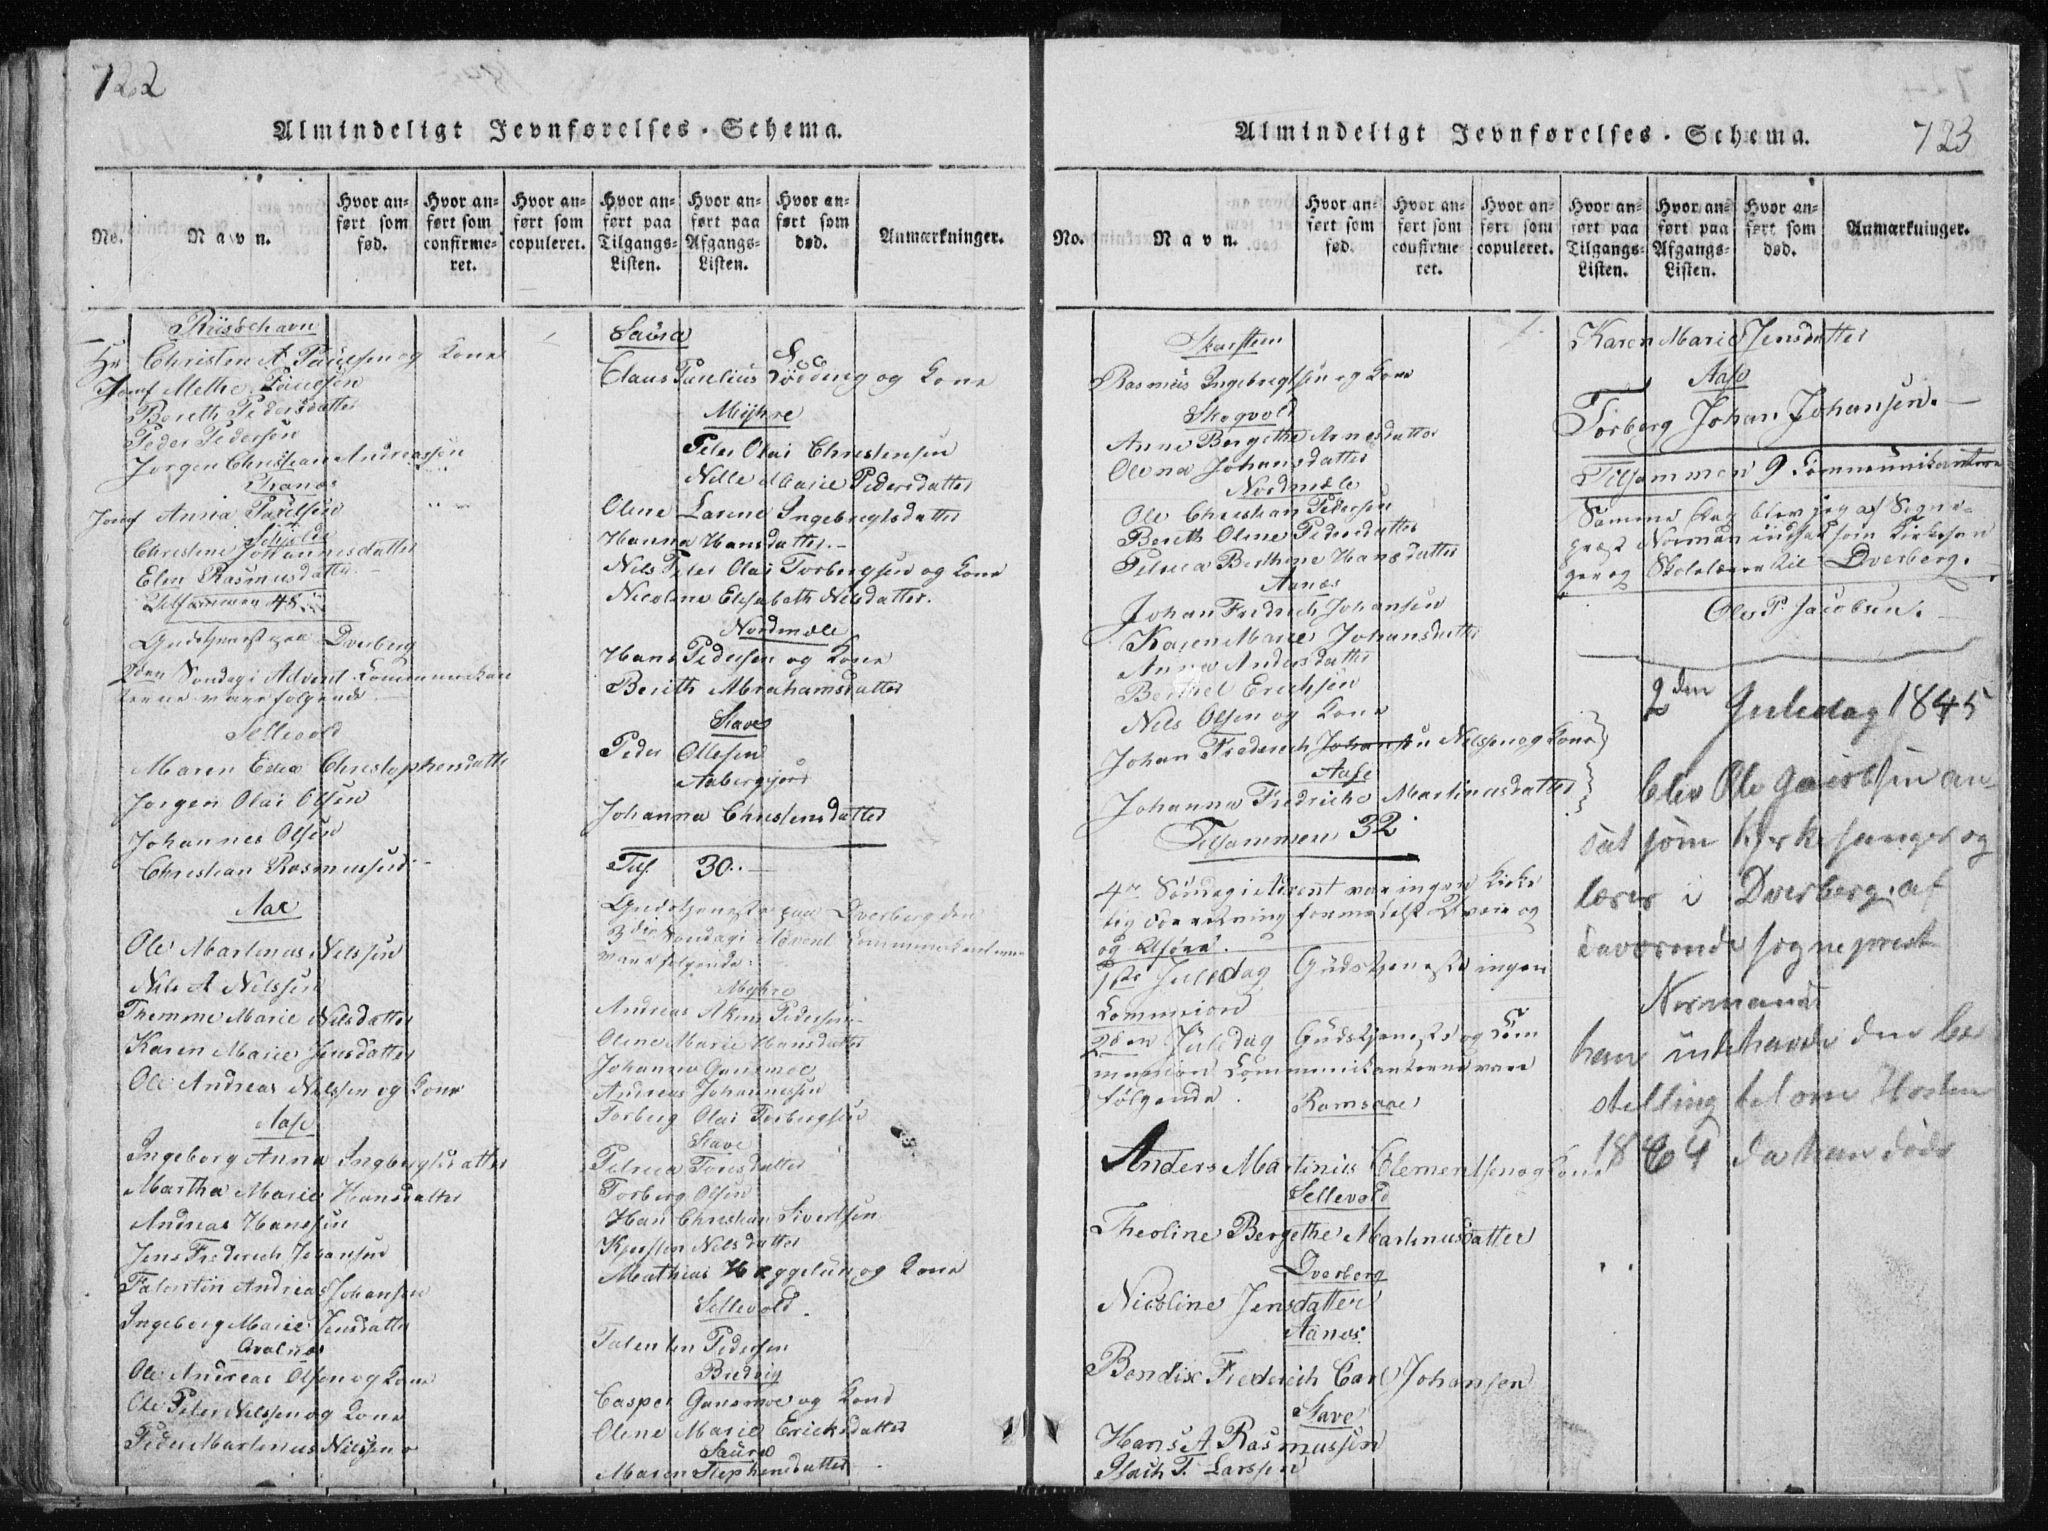 722
Almindeligt Jevnførelses-Schema.
No.
Navn.
Hvor anført som fød.
Hvor anført som confirmeret.
Hvor anført som copuleret.
Hvor anført paa Tilgangs-Listen.
Hvor anført paa Afgangs-Listen.
Hvor anført som død.
Anmærkninger.
Riisøehavn
Hr Christen A Paulsen og Kone
Jomf Methe Paulsen
Bereth Pedersdatter
Peder Pedersen
Jørgen Christian Andreassen
Jomf Anna Paulsen
Christine Johannesdatter
Elen Rasmusdatter
Tilsammen 45
Gudstjeneste paa Dverberg
2den Søndag i Advent Communikan
terne vare følgende
Sellevold
Maren Christophersdatter
Jørgen Olai Olsen
Johannes Olsen
Christian Rasmussen
Aae
Ole Martinus Nilssen
Nils A Nilssen
Themme Marie Nilsdatter
Karen Marie Jensdatter
Ole Andreas Nilssen og Kone
Aase
Ingeborg Anna Ingbrigtsdatter
Martha Marie Hansdatter
Andreas Hanssen
Jens Frederich Johansen
Falentin Andreas Johansen
Ingeborg Marie Jensdatter
Ole Andreas Olsen og Kone
Ole Peter Nilssen og Kone
Peder Martinus Nilssen
Saura
Claus Parelius Lødding og Kone
Myhre
Peter Olai Christensen
Nille Marie Pedersdatter
Oline Larine Ingebregtsdatter
Hanna Hansdatter
Nils Peter Olai Torbergsen og Kone
Nicoline Elisabeth Nilsdatter.
Nordmæle
Hans Pedersen og Kone
Berith Abrahamsdatter
Stave
Peder Ollesen
Aabergsjord
Johanna Christensdatter
Tils. 30.
Gudstjeneste paa Dverberg den
3die Søndag i Advent Communikanterne
vare følgende:
Myhre
Andreas Pedersen
Oline Marie Hansdatter
Johanna Gunsmoe
Andreas Johannessen
Torberg Olai Torbergsen
Stave
Petrica Toresdatter
Torberg Olsen
Han Christian Sivertsen
Kjersten Nilsdatter
Mathias Hæggelun og Kone
Sellevold.
Falenten Pedersen
Bredvig
Casper Gunsmoe og Kone
Oline Marie Ericksdatter
Saura
Maren Stephensdatter
723
Almindeligt Jevnførelses-Schema.
No.
Navn.
Hvor anført som fød.
Hvor anført som confirmeret.
Hvor anført som copuleret.
Hvor anført paa Tilgangs-Listen.
Hvor anført paa Afgangs-Listen.
Hvor anført som død.
Anmærkninger.
Skarsten
Rasmus Ingebregtsen og Kone
Skogvold
Anne Bergethe Arnesdatter
Olena Johansdatter
Nordmæle
Ole Christian Pedersen
Berith Oline Pedersdatter
Petrica Berthine Hansdatter
Aanæs
Johan Fredrich Johansen
Karen Marie Johansdatter
Anna Andersdatter
Berthel Ericksen
Nils Olsen og Kone
Johan Frederich Johansen Nilssen og Kone
Aase
Johanna Fredricke Martinusdatter
Tilsammen 32
4de Søndag i Advent var ingen Kirke
lig Forretning formedelst Uveir og
og Uføre.
1ste Juledag Gudstjeneste ingen
Communion
2den Juledag Gudstjeneste og Com
munion Communikanterne vare
følgende.
Ramsaae
Anders Martinius Clementsen og Kone
Sellevold
Theoline Bergethe Martinusdatter
Dverberg
Nicoline Jensdatter
Aanes.
Bendix Frederich Carl Johansen
Stave
Hans A Rasmussen
Isach T. Larssen
Karen Marie Jensdatter
Aase
Torberg Johan Johansen.
Tilsammen 9 Communikantere
Samme Dag blev jeg af Sogne-
præst Norman indsat som Kirkesan
ger og Skolelærer til Dverberg.
Ole P. Jacobsen.
2den Juledag 1845
blev Ole Jacobsen an-
sat som kirkesanger og
lærer i Dverberg af
daværende sogneprest
Normand
han indehavde den be
stelling til om Høsten
1864 da han døde